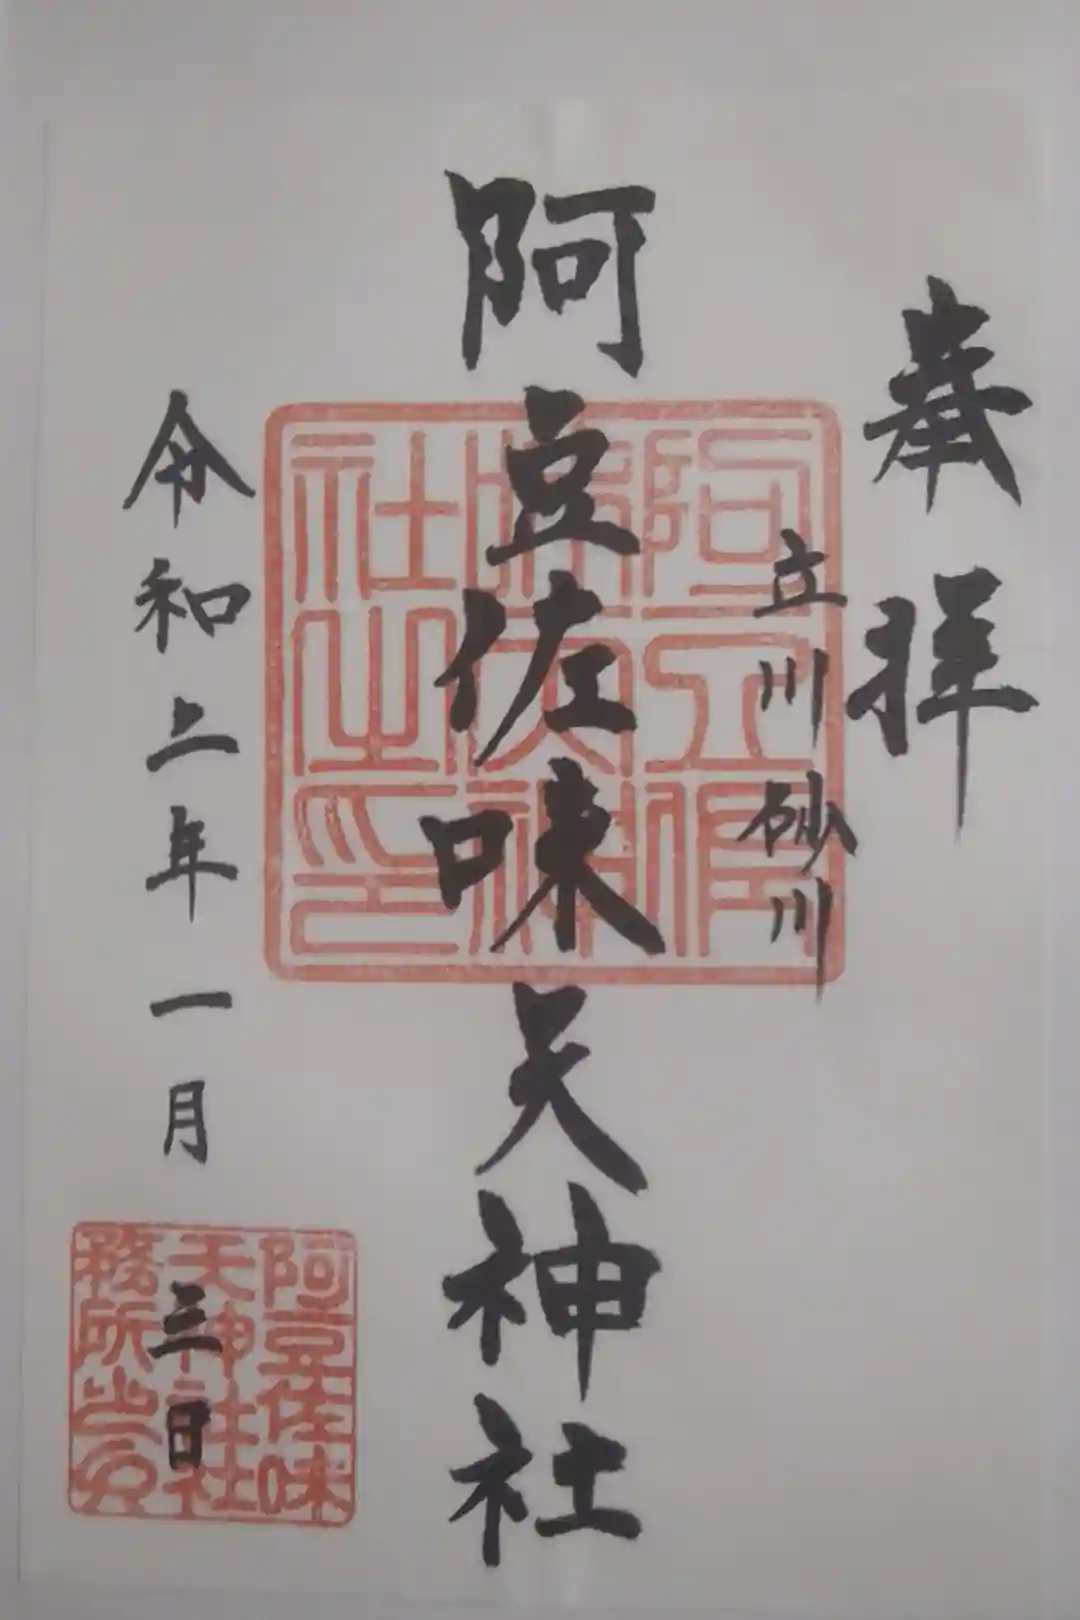 奉拝
立川砂川
阿豆佐味天神社
令和二年一月三日
阿豆佐味
天神社社
務所之印